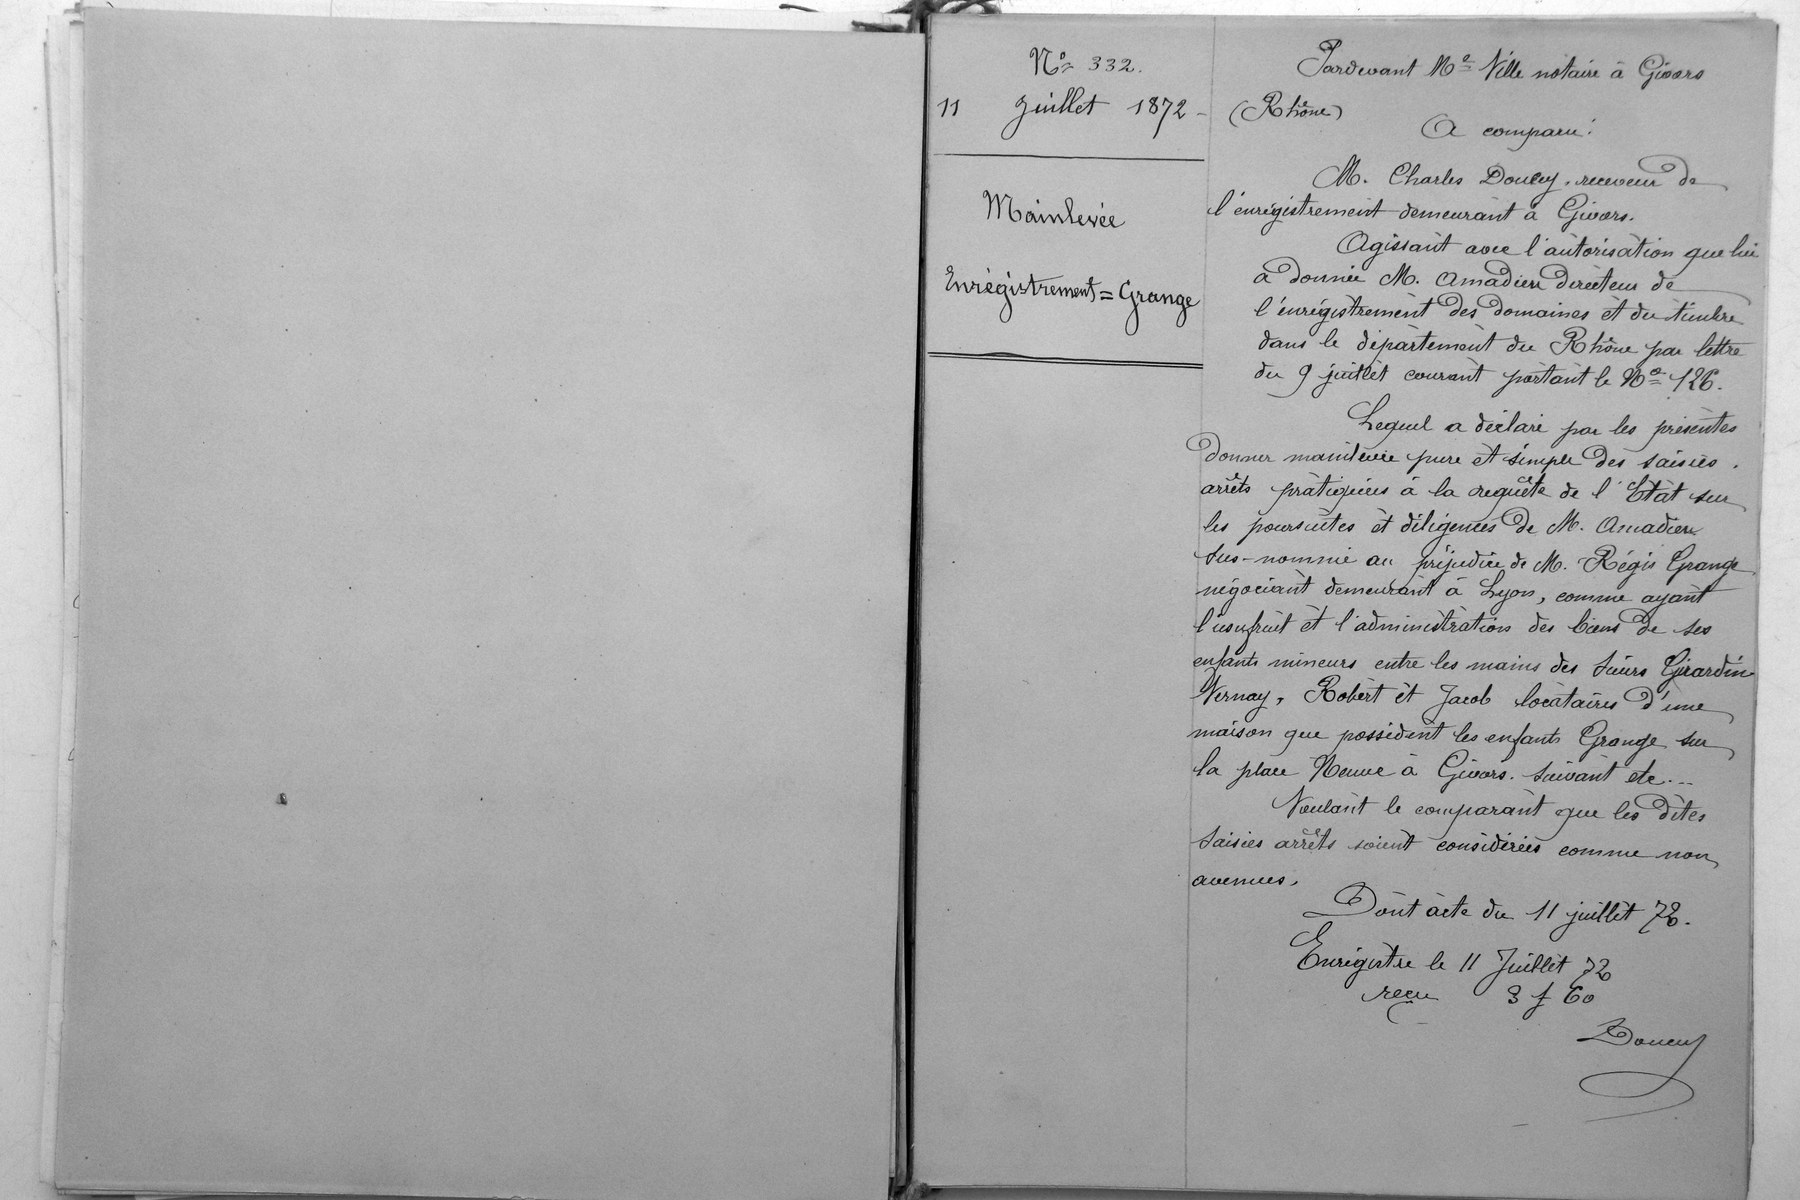 No 332.
11 Juillet 1872 -
Mainlevée
Enrégistrement = Grange
Pardevant Me Ville notaire à Givors
(Rhône)
A comparu:
M. Charles Doucy, receveur de
l'enrégistrement demeurant à Givors.
Agissant avec l'autorisation que lui
a donnée M. Amadieu directeur de
l'enrégistrement des domaines et du timbre
dans le département du Rhône par lettre
du 9 juillet courant portant le No 126.
Lequel a déclaré par les présentes
donner mainlevée pure et simple des saisies.
arrêts pratiquées à la requête de l'Etat sur
les poursuites et diligences de M. Amadieu
sus-nommé au préjudice de M. Régis Grange
négociant demeurant à Lyon, comme ayant
l'usufruit et l'administration des biens de ses
enfants mineurs entre les mains des sieurs Girardin
Vernay, Robert et Jacob locataires d'une
maison que possèdent les enfants Grange sur
la place Neuve à Givors. suivant etc...
Voulant le comparant que les dites
saisies arrêts soient considérées comme non
avenues.
Dont acte du 11 juillet 72.
Enrégistré le 11 Juillet 72
reçu 3 f 60
Doucy